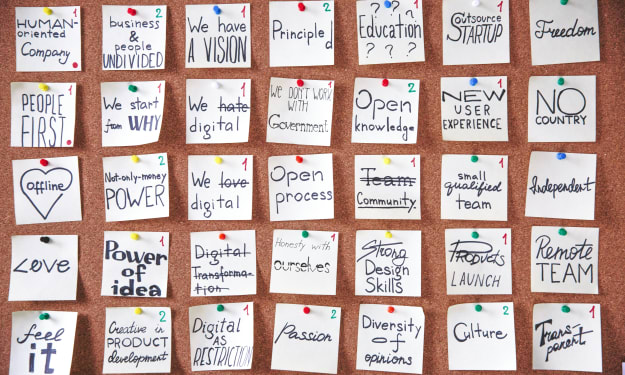 1
HUMAN-
oriented
Company
2
business
&
people
UNDIVIDED
1
We have
A VISION
1
Principled
? ? ?
Education
? ? ?
1
Outsource
STARTUP
Freedom
1
PEOPLE
FIRST
1
We start
from WHY
1
We hate
digital
1
We DON'T WORK
WITH
Government
2
Open
knowledge
1
NEW
USER
EXPERIENCE
NO
COUNTRY
offline
2
Not-only-money
POWER
1
We love
digital
1
Open
process
1
Team
Community
1
small
qualified
team
Independent
Love
1
Power
of
idea
1
Digital
Transforma-
tion
1
Honesty with
ourselves
Strong
Design
Skills
1
Products
LAUNCH
2
Remote
TEAM
feel
it
2
Creative in
PRODUCT
development
1
Digital
AS
RESTRICTION
2
Passion
Diversity
of
opinions
2
Culture
1
Trans-
parent